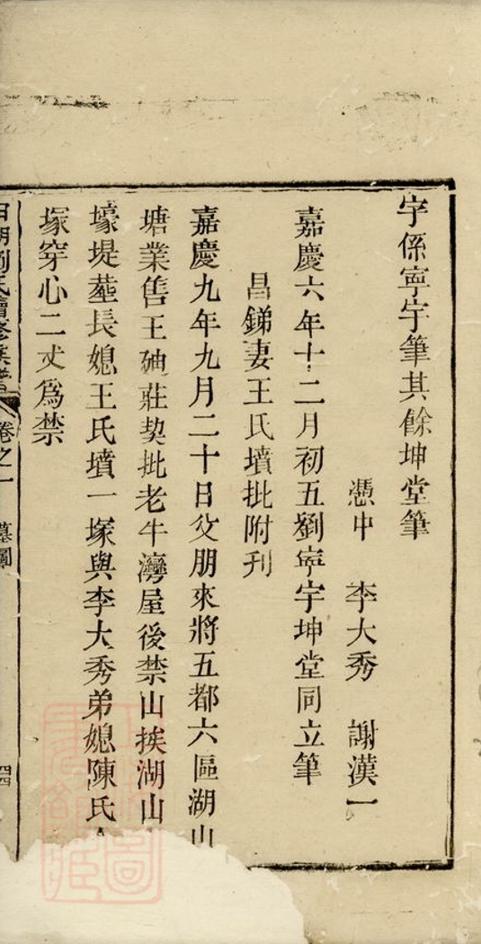 字係寧宇筆其餘坤堂筆
憑中　李大秀　謝漢一
嘉慶六年十二月初五劉寧宇坤堂同立筆
昌銻妻王氏墳批附刊
嘉慶九年九月二十日父朋來將五都六區湖山
塘業售王廸莊契批老牛灣屋後禁山挨湖山
壕堤塟長媳王氏墳一塚與李大秀弟媳陳氏
塚穿心二丈爲禁
劉氏續修族譜 卷之一 墓圖 四四